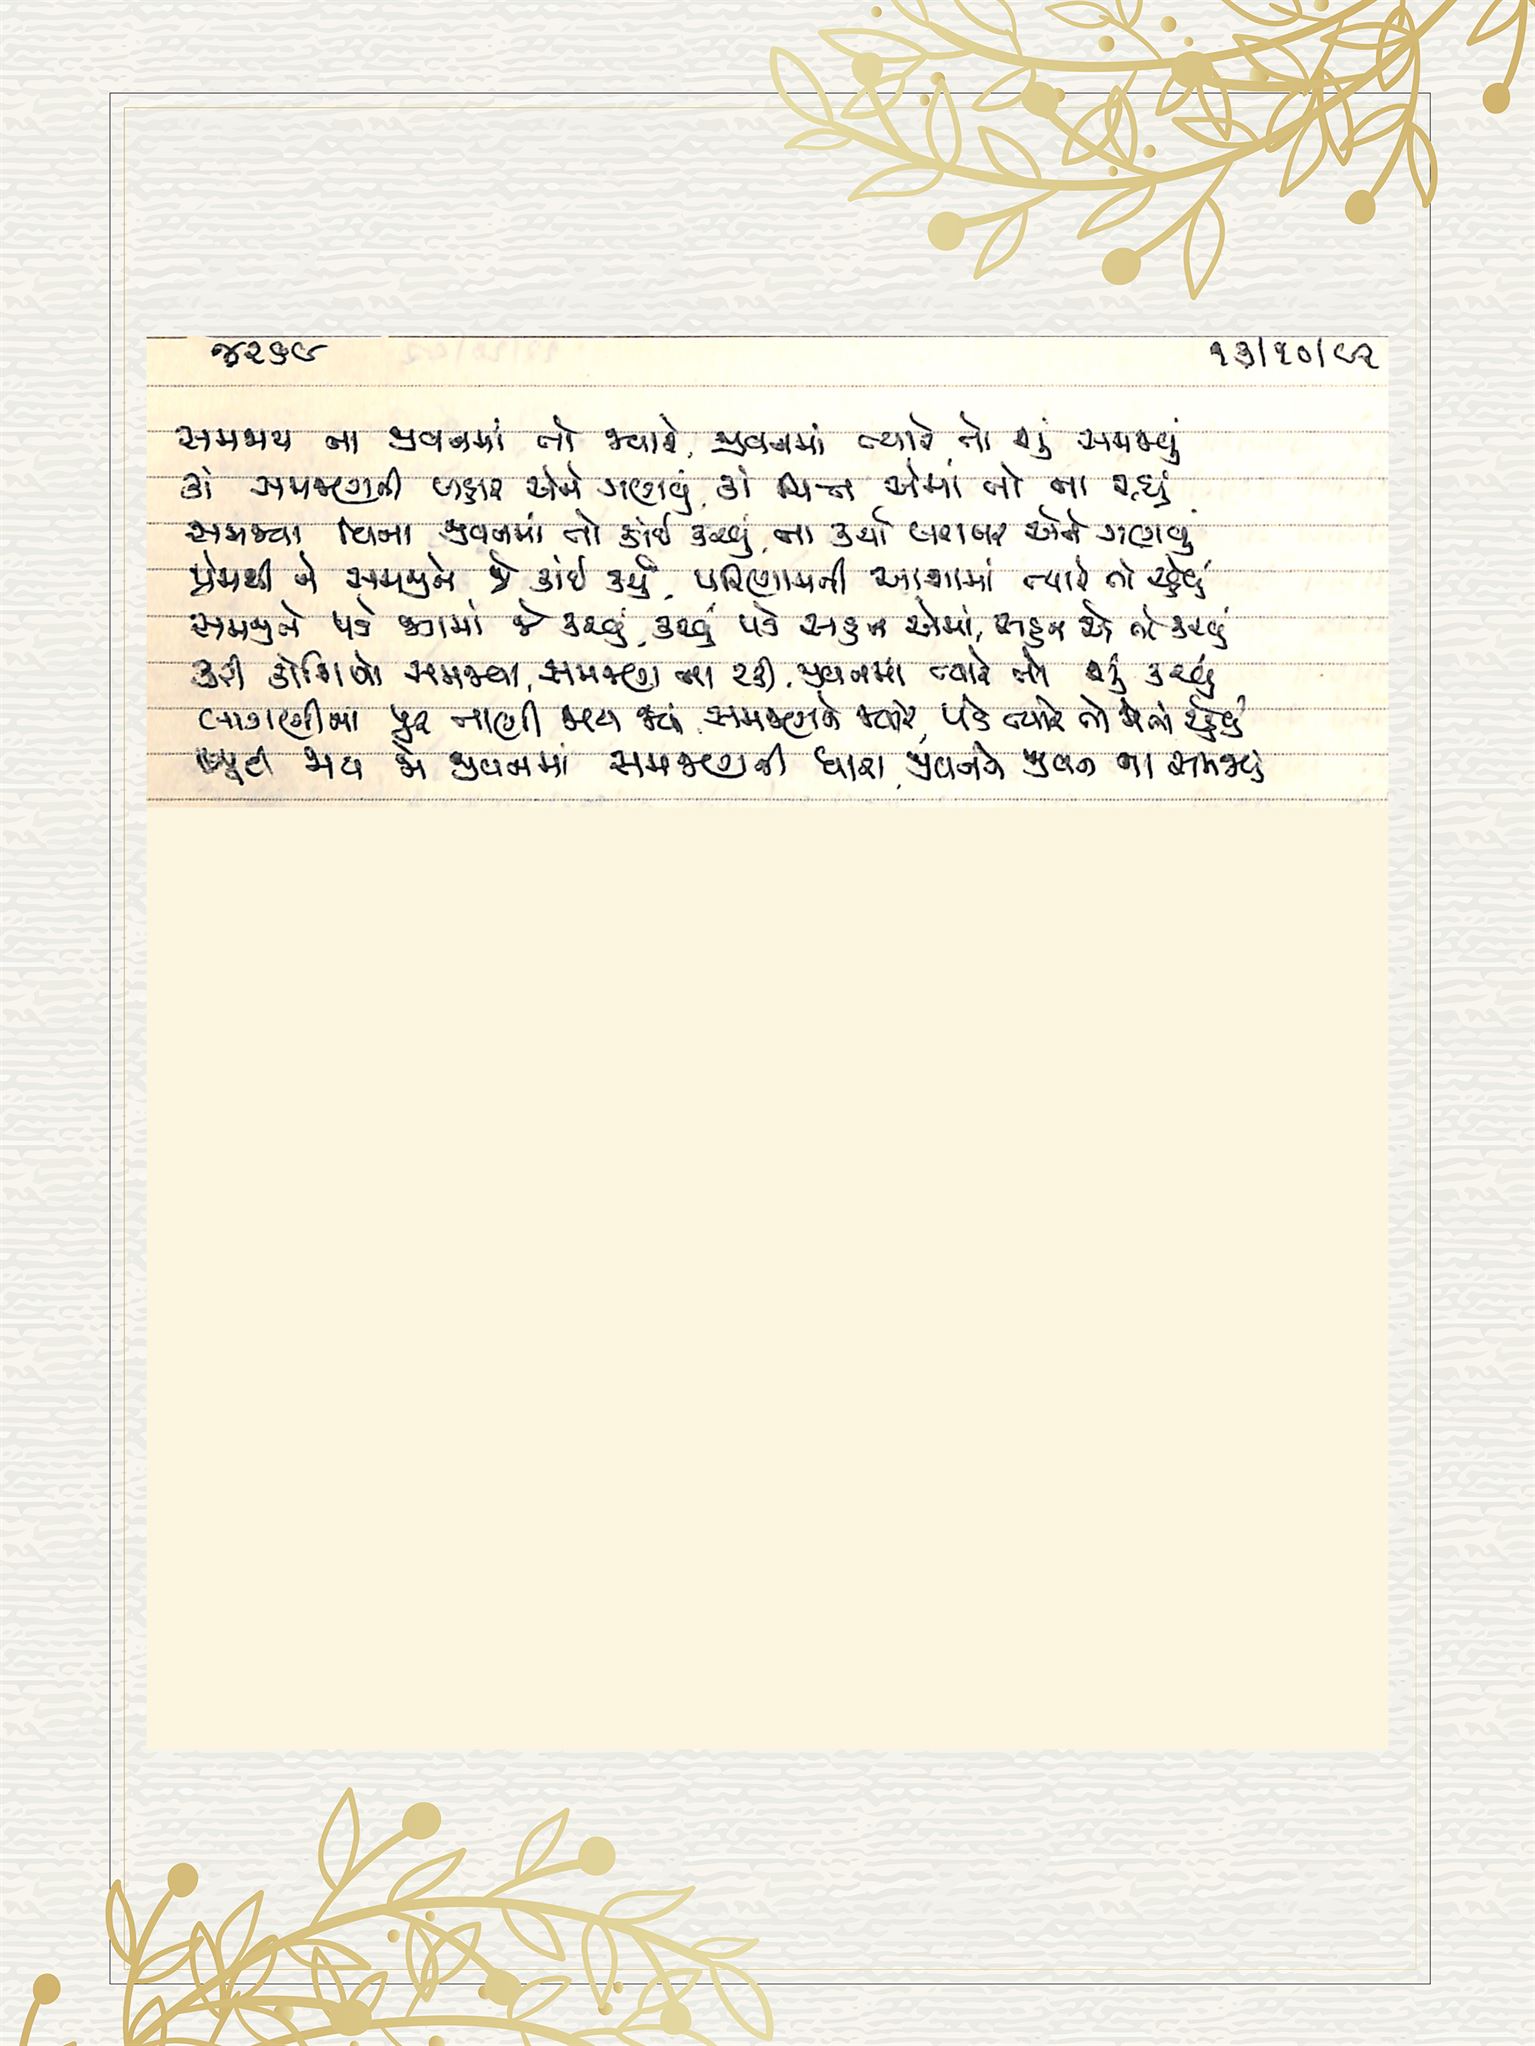 ૪૨૬૯ ૧૩/૧૦/૯૨
સમજાય ના જીવનમાં તો જ્યારે, જીવનમાં ત્યારે તો શું સમજવું
કાં સમજણની બહાર એને ગણવું, કાં ચિત્ત એમાં તો ના રહ્યું
સમજ્યા વિના જીવનમાં તો કાંઈ કરવું, ના કર્યા બરાબર એને ગણવું
પ્રેમથી ને સમજીને જે કાંઈ કર્યું, પરિણામની આશામાં ત્યારે તો રહેવું
સમજીને પડે જગમાં જે કરવું, કરવું પડે સહન એમાં, સહન એ તો કરવું
કરી કોશિશો સમજવા, સમજણ ના રહી, જીવનમાં ત્યારે તો શું કરવું
લાગણીના પૂર તાણી જાય જ્યાં સમજણને જ્યારે, પડે ત્યારે તો ચેતતાં રહેવું
ખૂટી જાય જો જીવનમાં સમજણની ધારા, જીવનને જીવન ના સમજવું